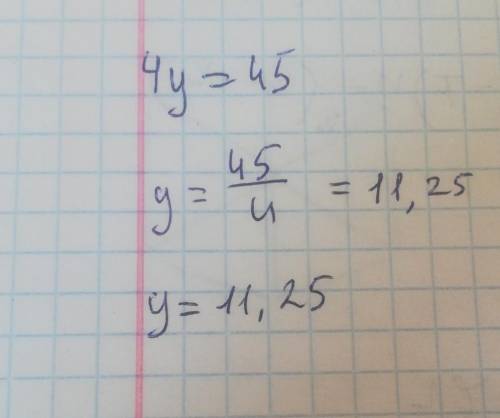 4y = 45
y = 45/4 = 11,25
y = 11,25